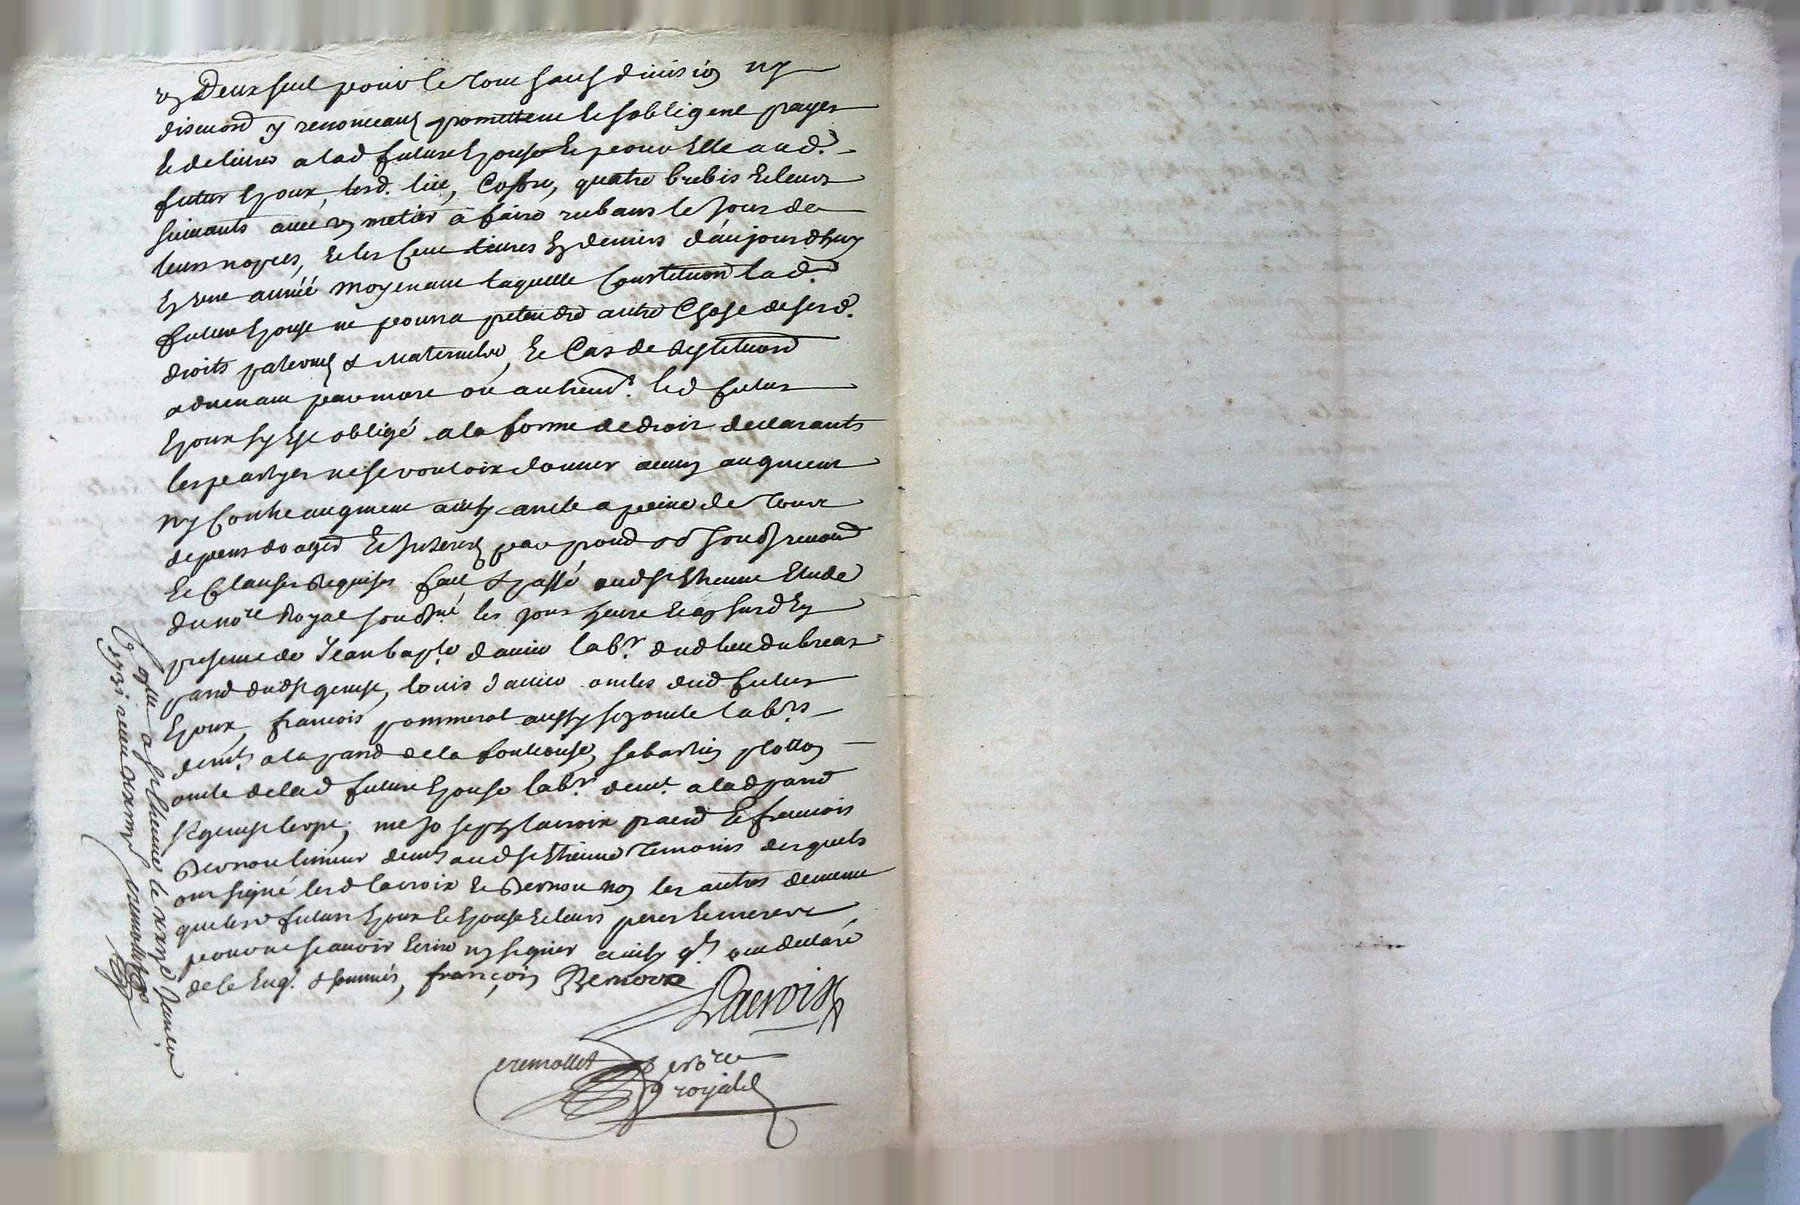 Deux seul pour le tout sans division ny
discution y renonceant promettent et sobligent payer
et delivrer a lad future Epouse et pour Elle aud.
futur Epoux, lesd. lict, Coffre, quatre brebis et leurs
suivants avec un metier a faire rubans le jour de
leurs nopces, et les Cent livres deniers d'aujourdhuy
En une année moyenant laquelle Constitution lad.
future Epouse ne pourra pretendre autre Chose de sesd.
droits paternels & Maternels, et Cas de Restitution
advenant par mort ou autrem.t led futur
Epoux sy Est obligé a la forme de droit declarants
les partyes ne se vouloir donner aucun augment
ny Contre augment ainsy a peine de tous
depens domages et Interests par
et Clauses Requises fait & passé aud St Etienne Etude
du no.re Royal sousig.né les jour heure et an susd En
presence de Jean bap.te lab.r dud lieu du
dud St genest, louis oncles dud futur
Epoux, francois pommerol aussy son oncle lab.rs
dem.ts a la de la sebastien plotton
oncle de lad future Epouse lab.r dem.t a lad
St genest lerpt, me Joseph lacroix et francois
Bernou dem.ts aud St Etienne temoins desquels
ont signé lesd lacroix et Bernou non les autres de meme
que lesd futurs Epoux et Epouse et leurs peres et meres
pour ne scavoir Ecrire ny signer ainsy q.ls ont declaré
de ce Enq. & sommés, françois Bernoux
Lacroix
cremollet no.re
royal
a St Etienne le janvier
1731 receu